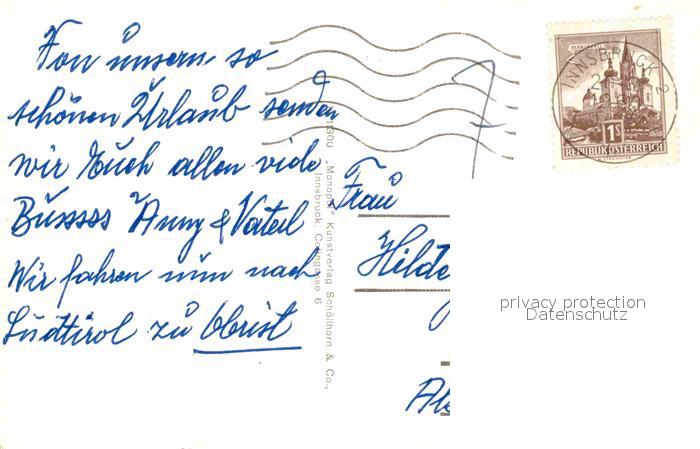 Von unsern so
schönen Urlaub senden
wir Euch allen viele
Busssss Anny & Vaterl
Wir fahren nun nach
Südtirol zu Obrist
"Monopol" Kunstverlag Schöllhorn & Co.,
Innsbruck, 6
Frau
Hilde
INNSBRUCK 2
1S
REPUBLIK ÖSTERREICH
privacy protection
Datenschutz